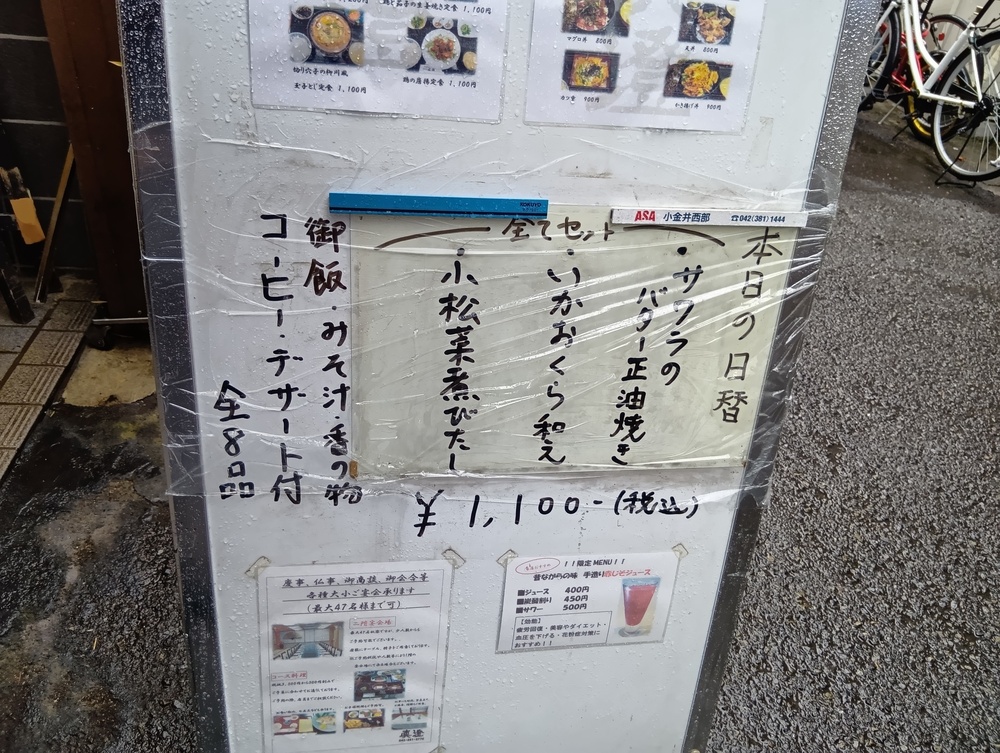 鶏と茄子の生姜焼き定食 1,100円
切り穴子の柳川風
玉子とじ定食 1,100円
鶏の唐揚定食 1,100円
マグロ丼 800円
天丼 800円
カツ重 900円
かき揚げ丼 900円
KOKUYO
ASA 小金井西部 ☎042(381)1444
本日の日替
全てセット
・サワラの
バター正油焼き
・いかおくら和え
・小松菜煮びたし
御飯・みそ汁・香の物
コーヒー・デザート付
全8品
¥1,100-(税込)
慶事、仏事、御商談、御会合等
各種大小ご宴会承ります
(最大47名様まで可)
二階宴会場
コース料理
!!限定MENU!!
昔ながらの味 手造り赤じそジュース
■ジュース 400円
■炭酸割り 450円
■サワー 500円
【効能】
疲労回復・美容やダイエット・
血圧を下げる・花粉症対策に
おすすめ!!